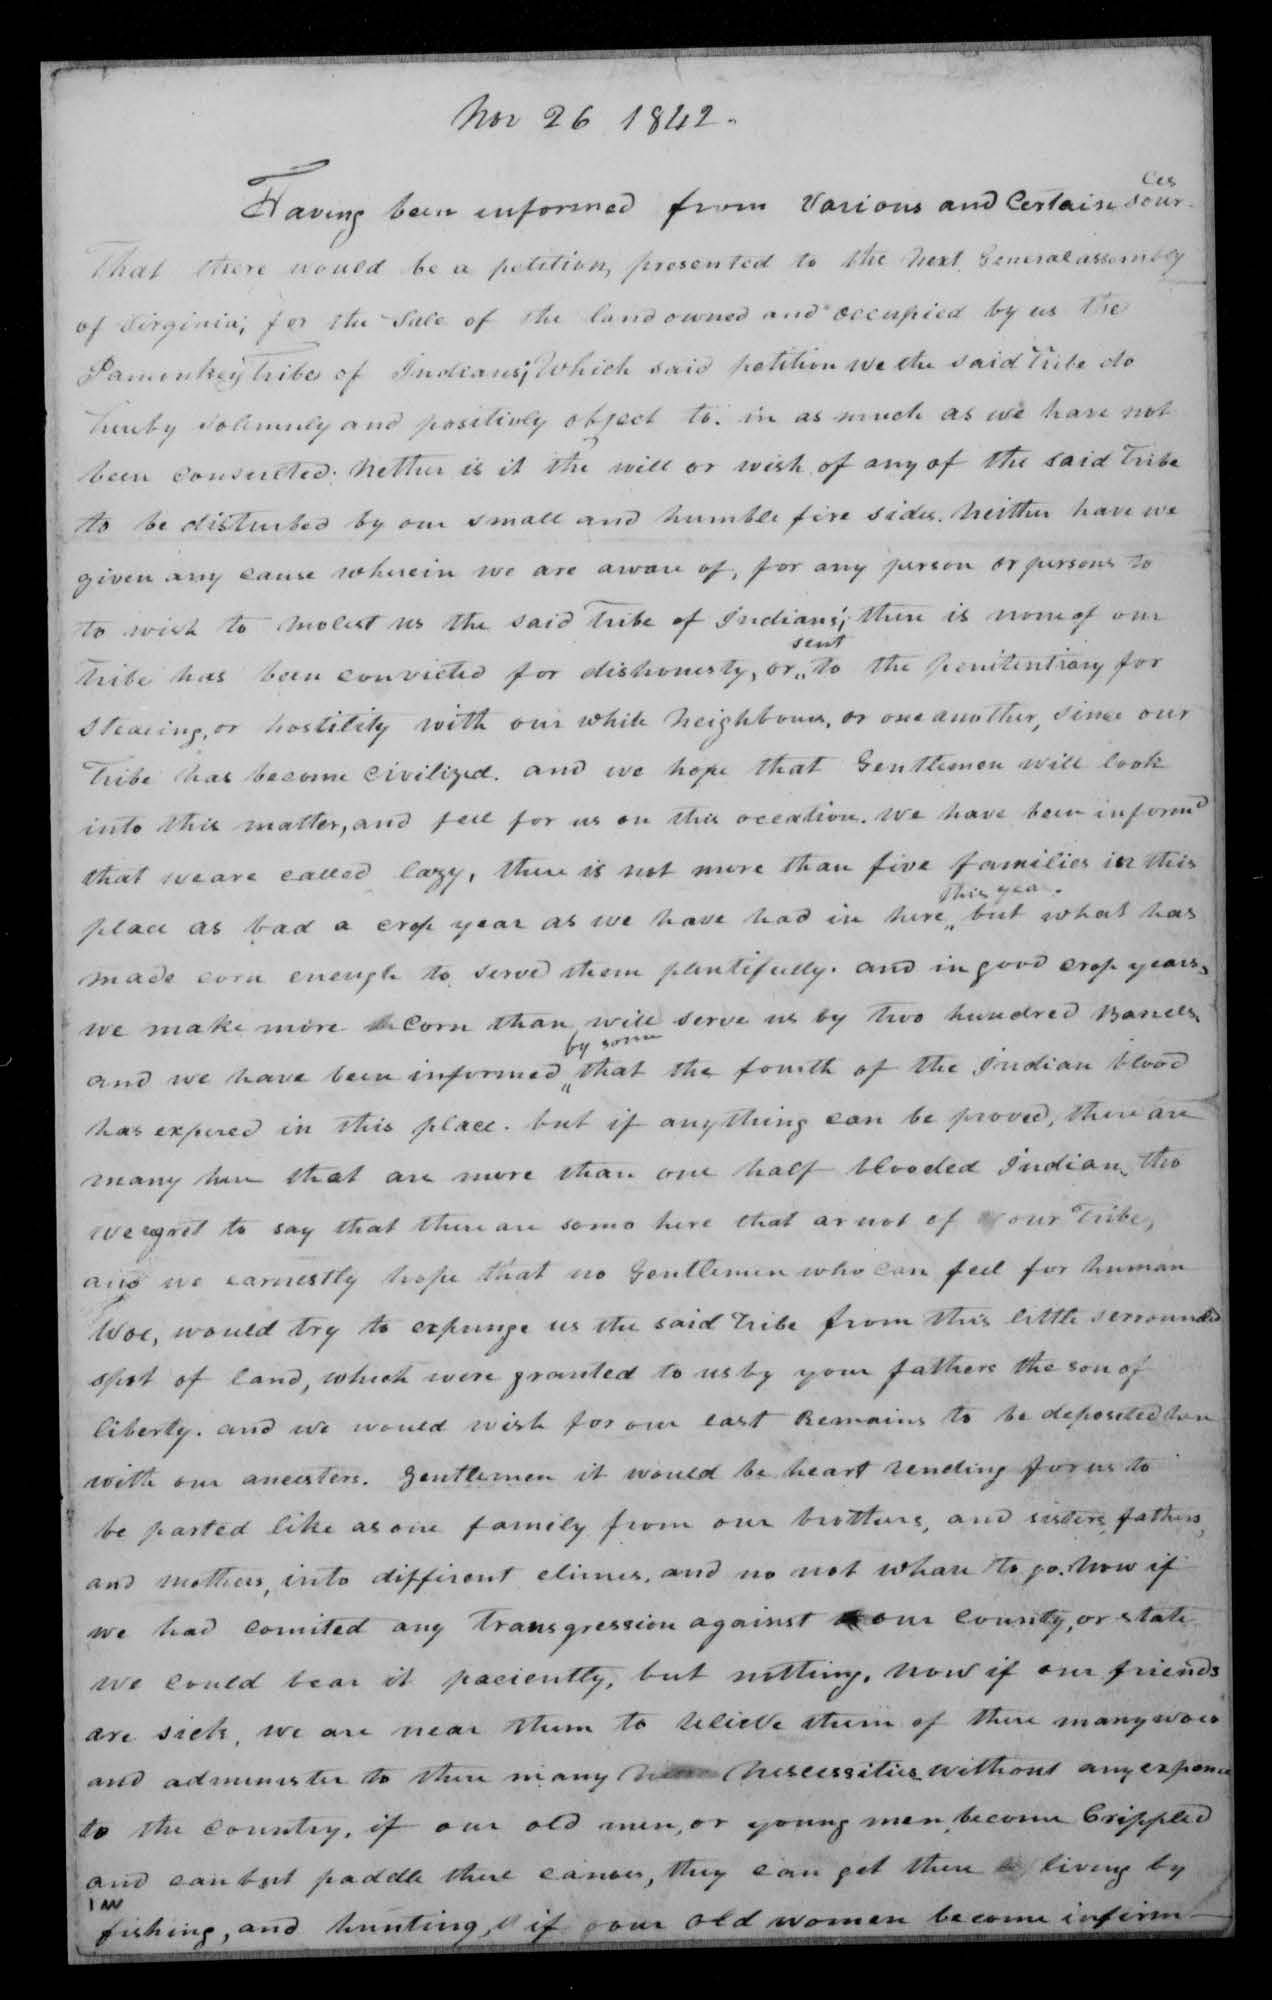 Nov 26 1842.
Having been informed from Various and Certain Sources
That there would be a petition, presented to the Next General assembly
of Virginia; for the Sale of the land owned and occupied by us the
Pamonkey Tribe of Indians; Which said petition we the said Tribe do
hereby Solemnly and positively object to. in as much as we have not
been consulted. Nether is it the will or wish of any of the said Tribe
to be disturbed by our small and humble fire sides. Neither have we
given any cause wherein we are aware of, for any person or persons to
to wish to molest us the said Tribe of Indians; there is none of our
Tribe has been convicted for dishonesty, or sent to the penitentiary for
stealing, or hostility with our white Neighbours, or one another, since our
Tribe has become Civilized. and we hope that Gentlemen will look
into this matter, and feel for us on this occation. We have been informd
that we are called lazy, there is not more than five families in this
place as bad a crop year as we have had in here this year. but what has
made corn enough to serve them plentifully. and in good crop years,
we make more Corn than will serve us by two hundred Barrels.
and we have been informed by some that the fourth of the Indian blood
has expired in this place. but if anything can be proved, there are
many here that are more than one half blooded Indian, tho
we egret to say that there are some here that ar not of our Tribe,
and we earnestly hope that no Gentlemen who can feel for human
Woe, would try to expunge us the said Tribe from this little serrounded
spot of land, which were granted to us by your fathers the son of
liberty. and we would wish for our last Remains to be deposited here
with our ancestors. Gentlemen it would be heart rending for us to
be parted like as one family from our brothers, and sisters, fathers,
and mothers, into different climes, and no not whare to go. Now if
we had comited any Transgression against our County, or state
we could bear it paciently, but nothing. Now if our friends
are sick, we are near them to relieve them of there many woes
and administer to there many Nescessities without any expence
to the Country, if our old men, or young men become Crippled
and can but paddle there canoes, they can get there living by
fishing, and hunting, if our old women become infirm